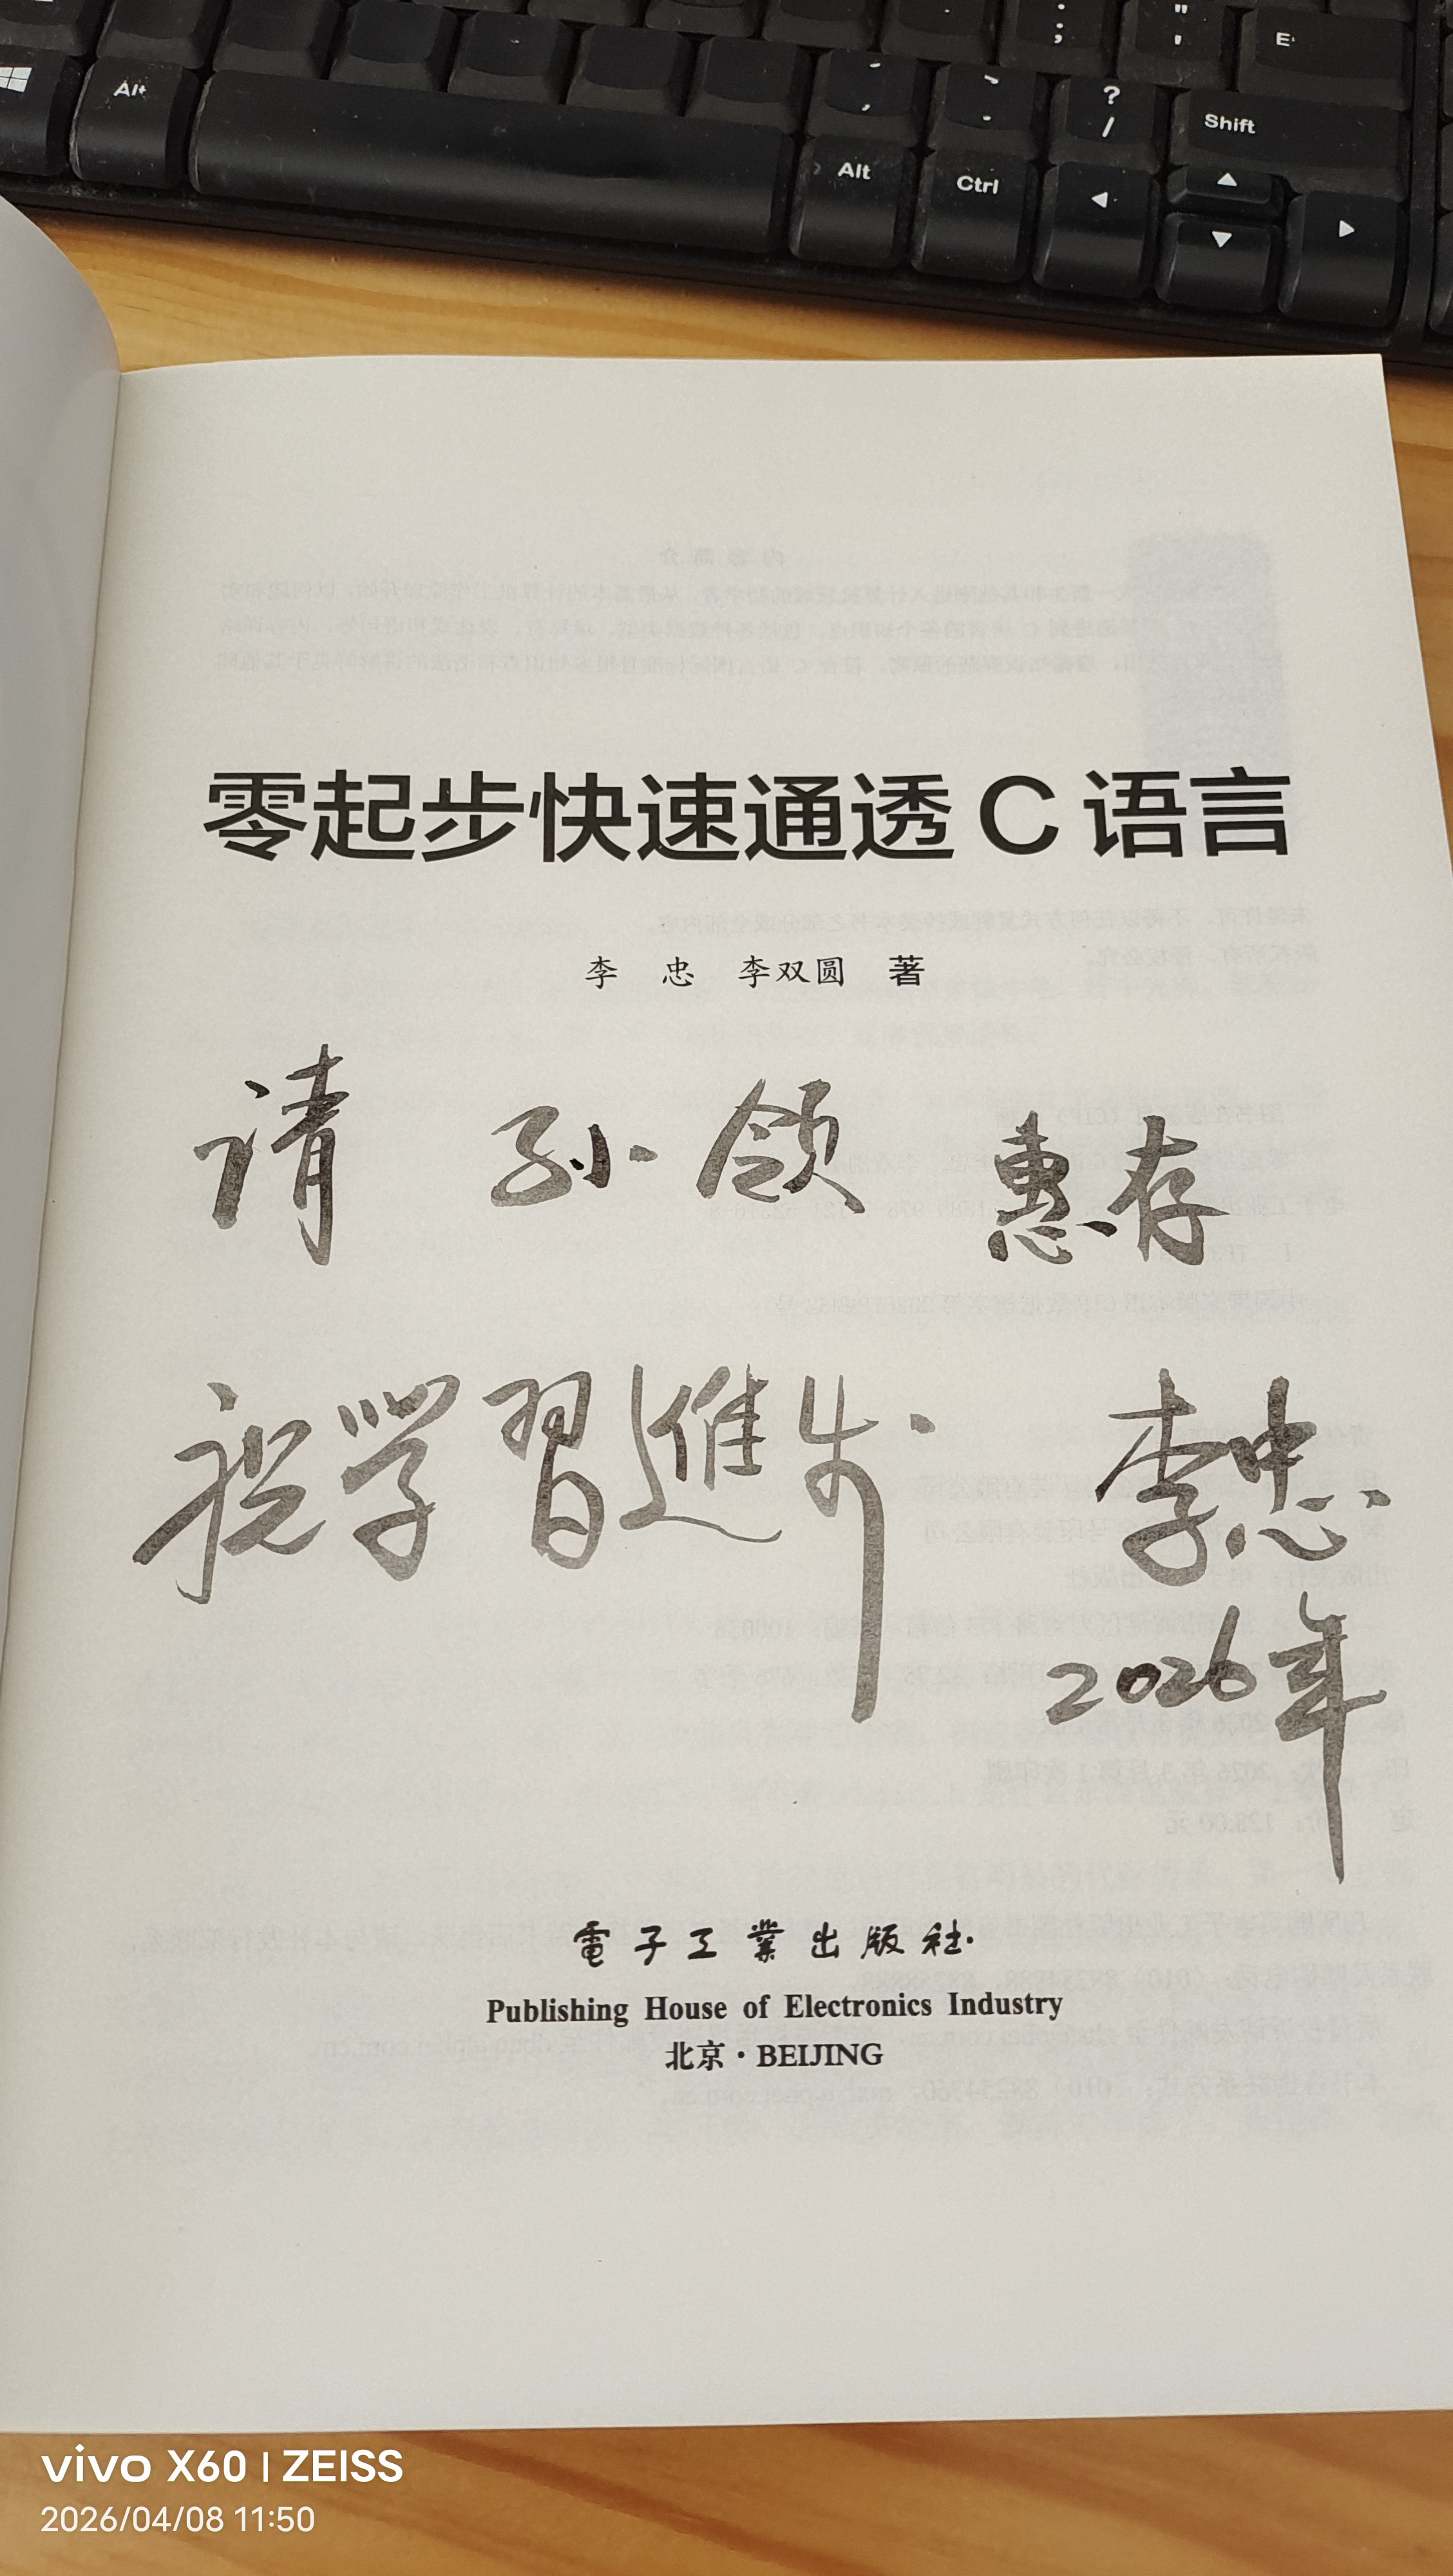 Alt
Alt
Ctrl
Shift
零起步快速通透C语言
李 忠 李双圆 著
请 孙领 惠存
祝学習進步 李忠
2026年
電子工業出版社
Publishing House of Electronics Industry
北京·BEIJING
vivo X60 | ZEISS
2026/04/08 11:50